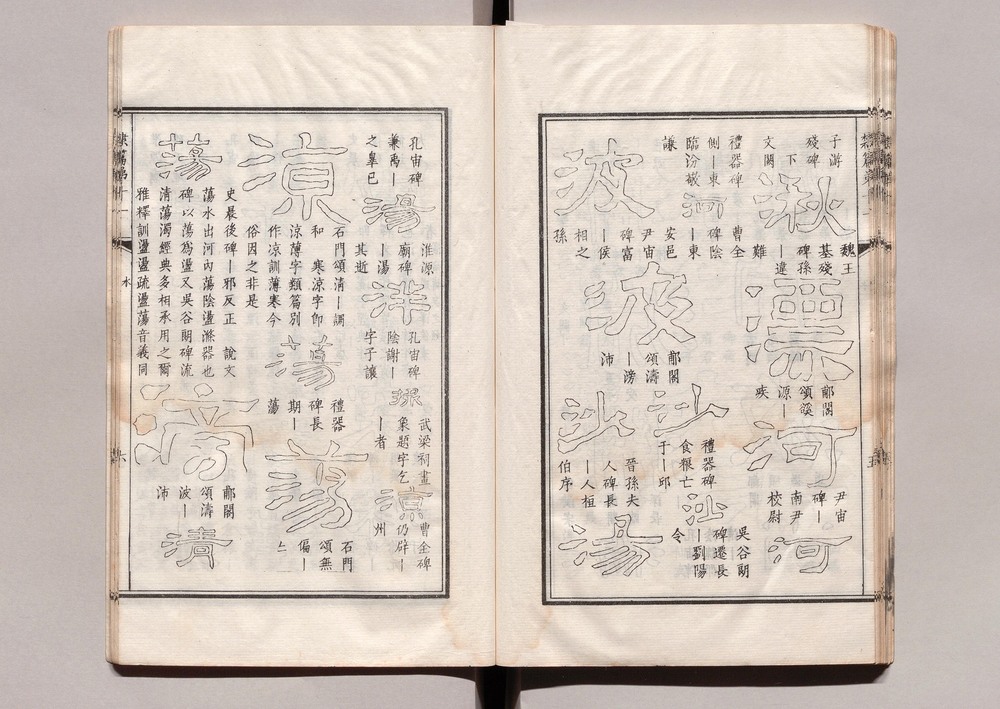 子游
殘碑
下
文闕
湫
魏王
基殘
碑孫
｜違
難
郙閣
頌谿
源｜
疾
河
尹宙
碑｜
南尹
校尉
河
禮器碑
側｜東
臨汾敬
謙
河
曹全
碑陰
｜東
安邑
波
尹宙
碑富
｜侯
相之
孫
波
郙閣
頌濤
｜滂
沛
沙
禮器碑
食粮亡
于｜邱
沙
晉孫夫
人碑長
｜人桓
伯序
沙
吳谷朗
碑遷長
｜劉陽
令
湯
孔宙碑
兼禹｜
之皋已
湯
淮源
廟碑
｜湯
其逝
洋
孔宙碑
陰謝｜
字子讓
武梁祠畫
象題字乞
｜者
涼
曹全碑
仍辟｜
州
涼
石門頌清｜調
和　寒涼字即
涼薄字類篇別
作凉訓薄寒今
俗因之非是
蕩
禮器
碑長
期｜
蕩
蕩
石門
頌無
偏｜
蕩
史晨後碑｜邪反正　說文
蕩水出河內蕩陰盪滌器也
碑以蕩為盪又吳谷朗碑流
清蕩濁經典多相承用之爾
雅釋訓盪盪疏盪蕩音義同
水
滂
郙閣
頌濤
波｜
沛
清